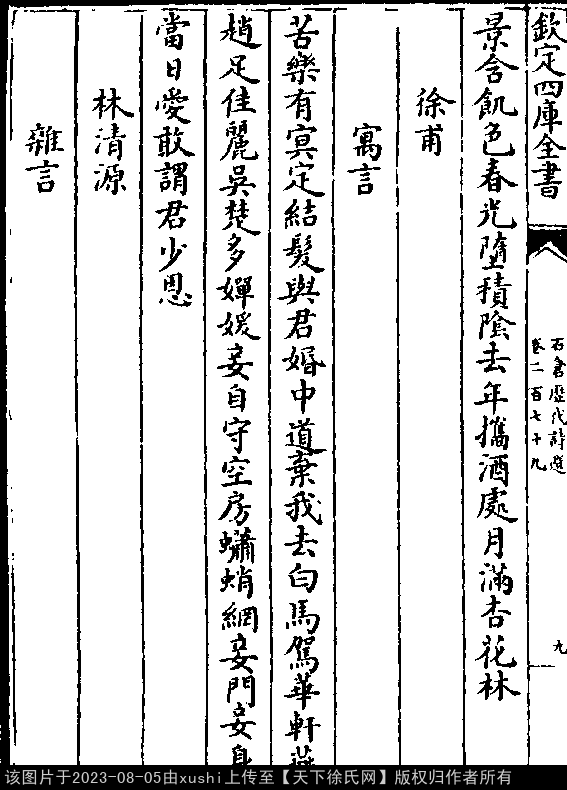 欽定四庫全書
石倉歷代詩選
卷二百七十九
九
景含飢色春光墮積陰去年攜酒處月滿杏花林
徐甫
寓言
苦樂有寞定結髮與君婚中道棄我去白馬駕華軒燕
趙足佳麗吳楚多嬋媛妾自守空房蠨蛸網妾門妾身
當日愛敢謂君少恩
林清源
雜言
该图片于2023-08-05由xushi上传至【天下徐氏网】版权归作者所有